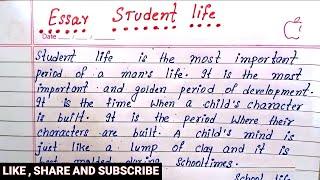 Essay Student life
Date
Student life is the most important
period of a man's life. It is the most
important and golden period of development.
It is the time when a child's character
is built. It is the period where their
characters are built. A child's mind is
just like a lump of clay and it is
best molded during schooltimes.
School life
LIKE , SHARE AND SUBSCRIBE